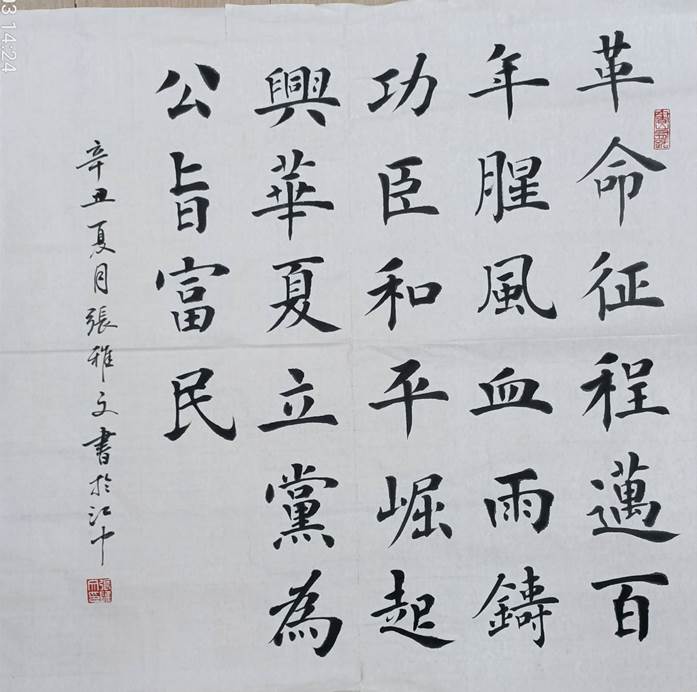 革命征程邁百
年腥風血雨鑄
功臣和平崛起
興華夏立黨為
公旨富民
辛丑夏月張雅文書於江中
03 14:24